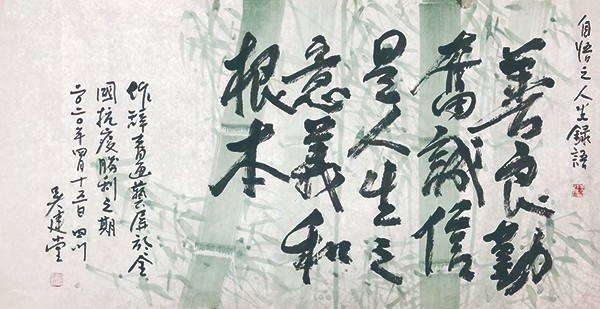 自悟之人生錄語
善良勤
奮誠信
是人生之
意義和
根本
藝 於全
國抗疫勝利之期
二〇二〇年四月十五日四川
吴建堂